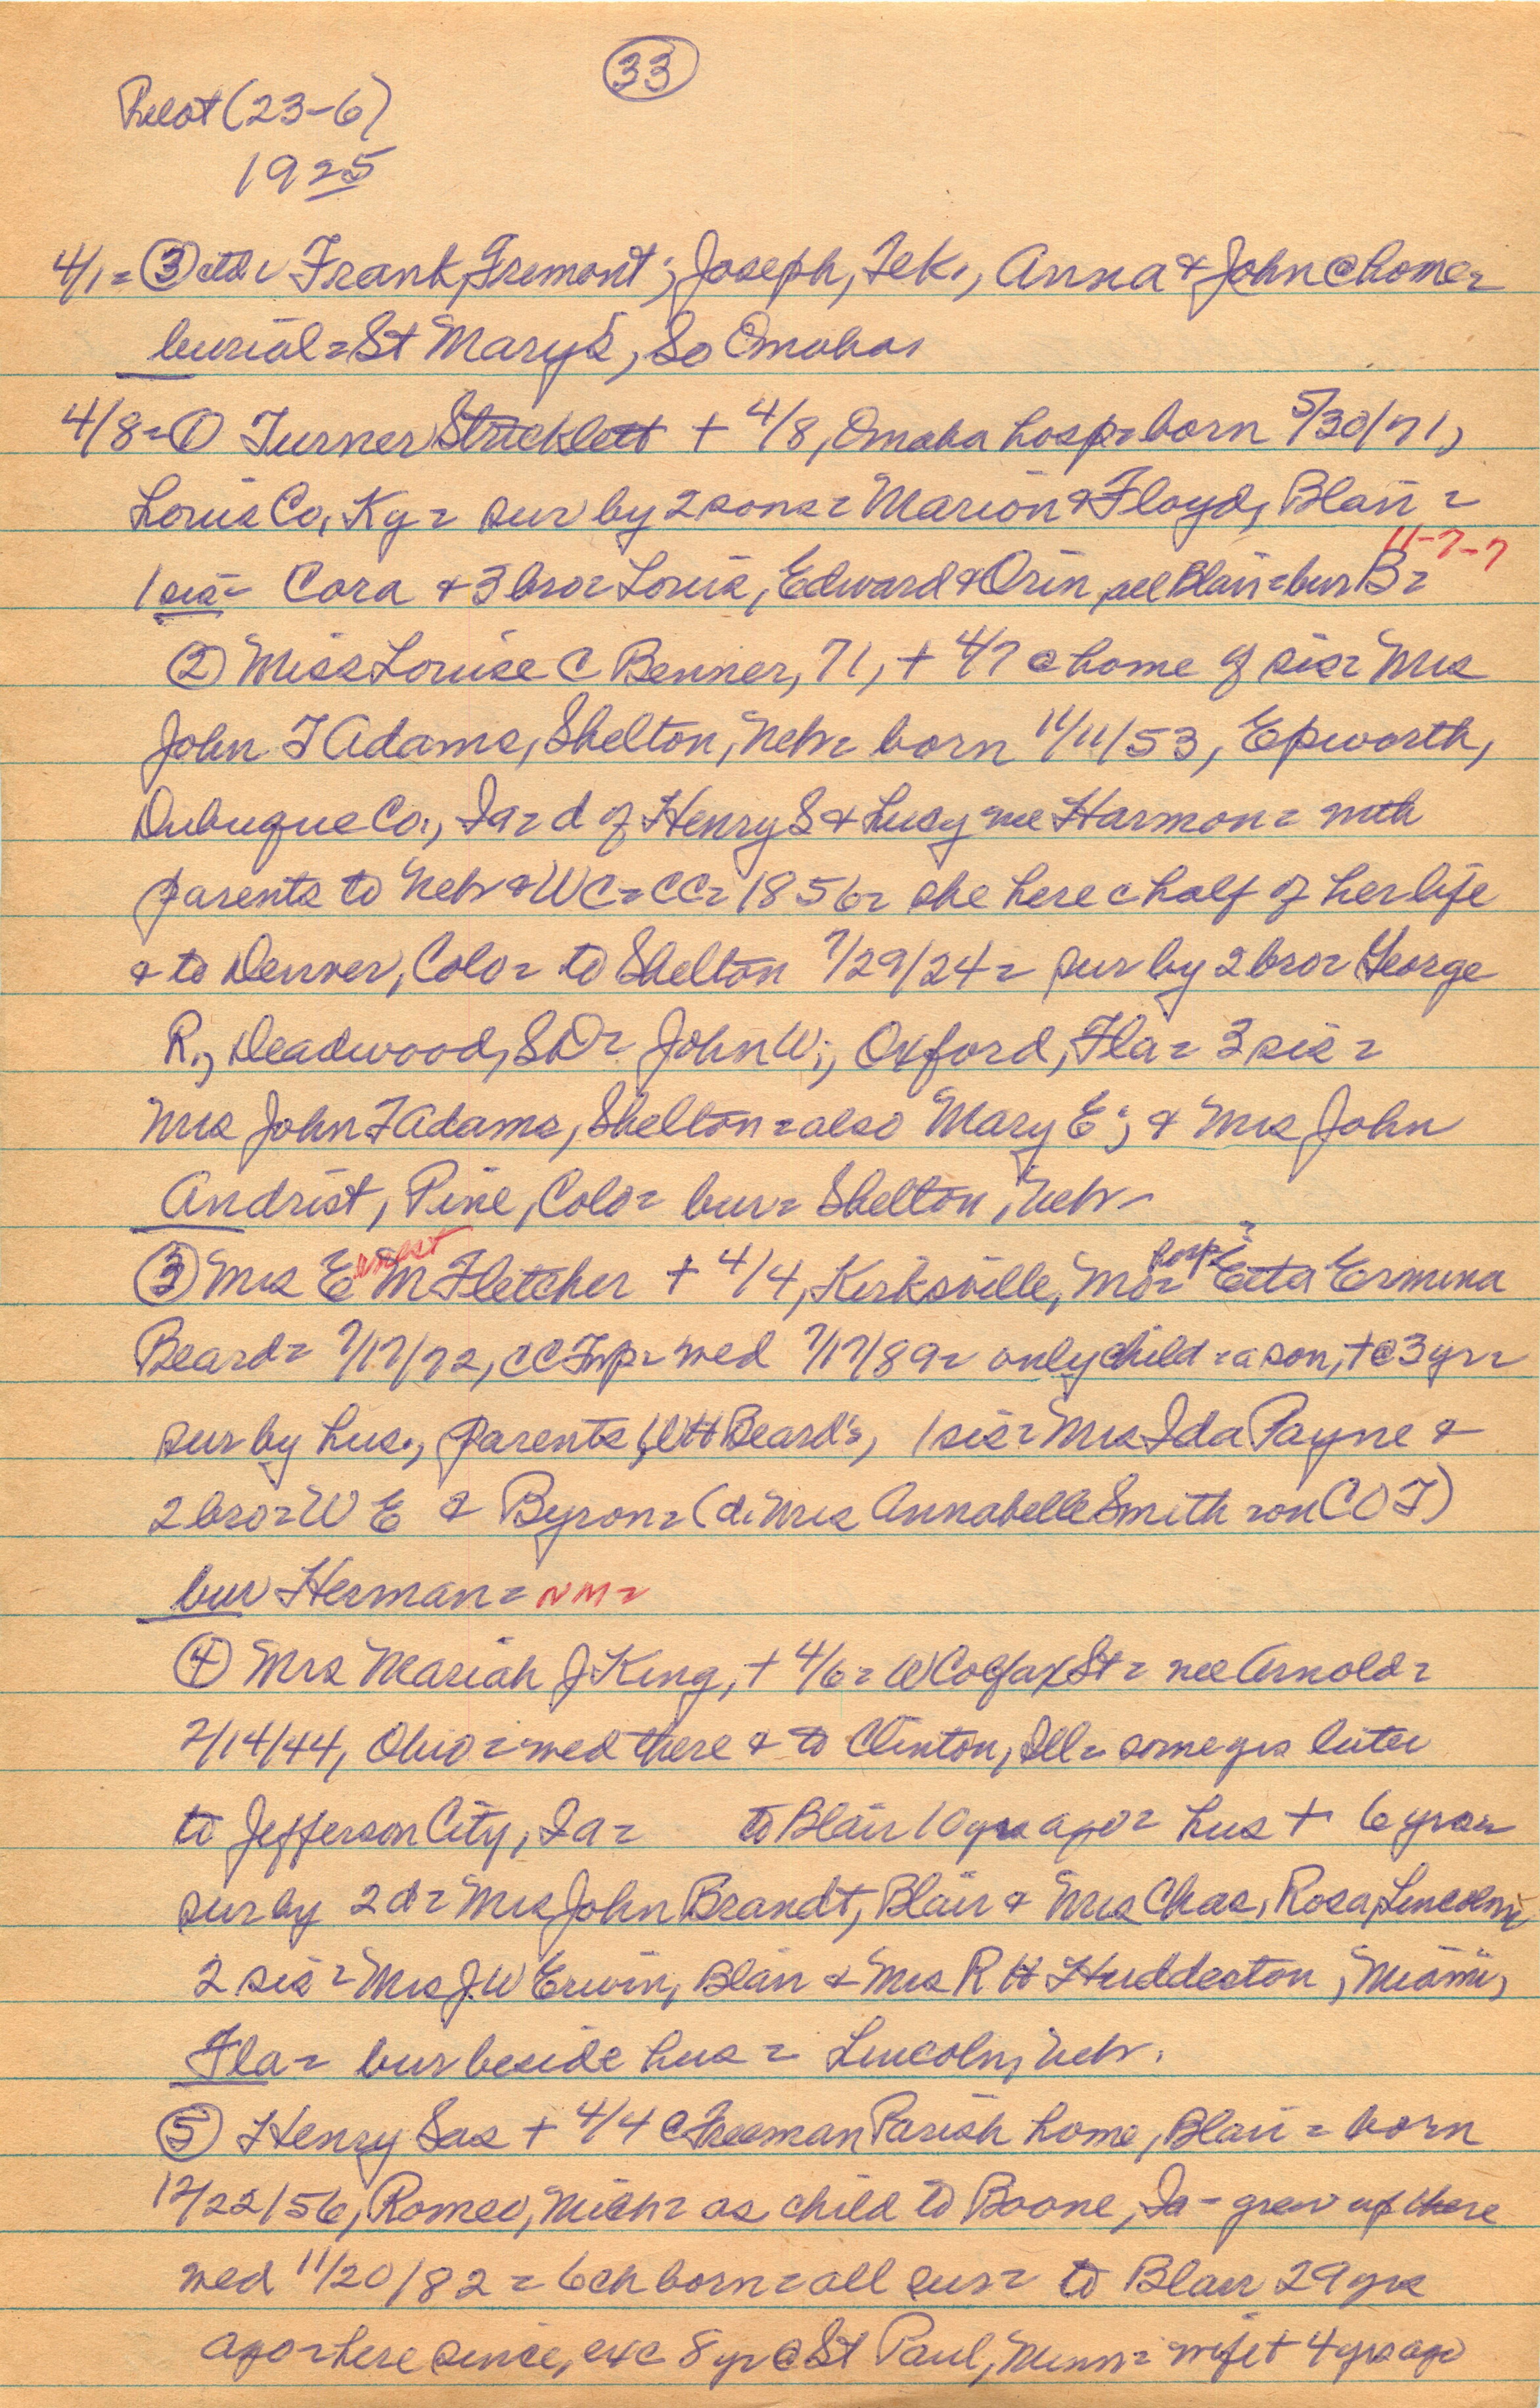 33
Pilot (23-6)
1925
4/1= ③ ctd= Frank, Fremont; Joseph, Tek., Anna & John @ home=
burial= St Mary's, So Omaha.
4/8= ① Turner Stricklett + 4/8, Omaha hosp= born 5/30/71,
Louis Co, Ky= sur by 2 sons= Marion & Floyd, Blair=
11-7-7
1 sis= Cora & 3 bro= Louis, Edward & Orin, all Blair= bur B=
② Miss Louise C Benner, 71, + 4/7 @ home of sis= Mrs
John F Adams, Shelton, Neb= born 11/11/53, Epworth,
Dubuque Co., Ia= d of Henry S & Lucy nee Harmon= with
parents to Neb & WC= CC= 1856= she here c half of her life
& to Denver, Colo= to Shelton 7/29/24= sur by 2 bro= George
R., Deadwood, SD= John W., Oxford, Fla= 3 sis=
Mrs John F Adams, Shelton= also Mary E; & Mrs John
Andrist, Pine, Colo= bur= Shelton, Neb=
③ Mrs Ernest M Fletcher + 4/4, Kirksville, Mo= hosp= Etta Ermina
Beard= 7/17/72, CC Twp= wed 7/17/89= only child= a son, + @ 3 yr=
sur by hus., parents, WH Beard's, 1 sis= Mrs Ida Payne &
2 bro= W E & Byron= (d. Mrs Annabelle Smith= on COT)
bur Herman= NM=
④ Mrs Mariah J King, + 4/6= W Colfax St= nee Arnold=
2/14/44, Ohio= wed there & to Clinton, Ill= some yrs later
to Jefferson City, Ia= to Blair 10 yrs ago= hus + 6 yrs=
sur by 2 d= Mrs John Brandt, Blair & Mrs Chas. Rosa, Lincoln;
2 sis= Mrs J.W Erwin, Blair & Mrs R H Huddeston, Miami,
Fla= bur beside hus= Lincoln, Neb.
⑤ Henry Sas + 4/4 @ Freeman Parish home, Blair= born
12/22/56, Romeo, Mich= as child to Boone, Ia- grew up there
wed 11/20/82= 6 ch born= all sur= to Blair 29 yrs
ago= here since, exc 8 yr @ St Paul, Minn= wife + 4 yrs ago